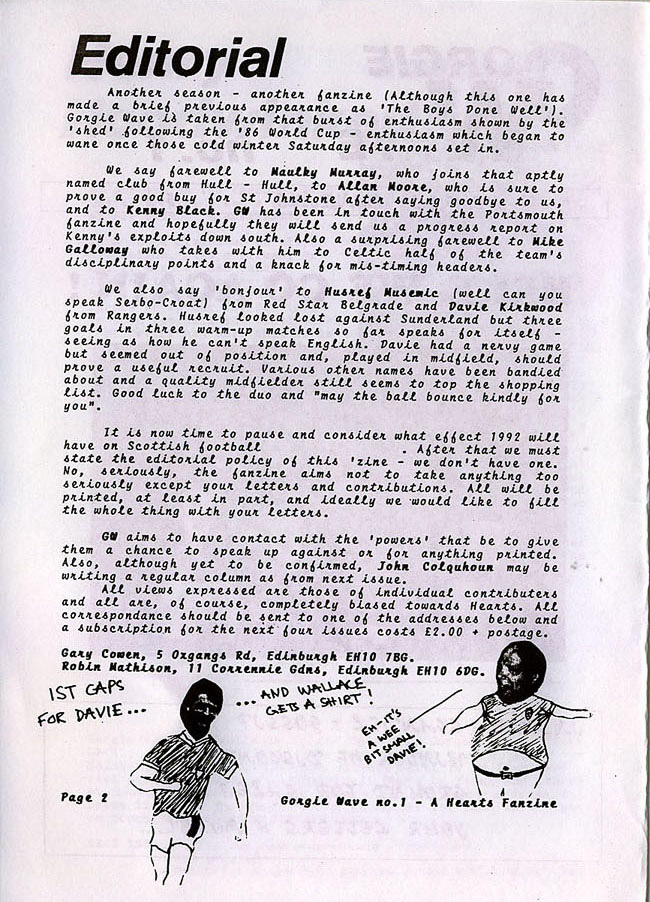 Editorial
Another season - another fanzine (Although this one has
made a brief previous appearance as 'The Boys Done Well').
Gorgie Wave is taken from that burst of enthusiasm shown by the
'shed' following the '86 World Cup - enthusiasm which began to
wane once those cold winter Saturday afternoons set in.
We say farewell to Maulky Murray, who joins that aptly
named club from Hull - Hull, to Allan Moore, who is sure to
prove a good buy for St Johnstone after saying goodbye to us,
and to Kenny Black. GW has been in touch with the Portsmouth
fanzine and hopefully they will send us a progress report on
Kenny's exploits down south. Also a surprising farewell to Mike
Galloway who takes with him to Celtic half of the team's
disciplinary points and a knack for mis-timing headers.
We also say 'bonjour' to Husref Musemic (well can you
speak Serbo-Croat) from Red Star Belgrade and Davie Kirkwood
from Rangers. Husref looked lost against Sunderland but three
goals in three warm-up matches so far speaks for itself -
seeing as how he can't speak English. Davie had a nervy game
but seemed out of position and, played in midfield, should
prove a useful recruit. Various other names have been bandied
about and a quality midfielder still seems to top the shopping
list. Good luck to the duo and "may the ball bounce kindly for
you".
It is now time to pause and consider what effect 1992 will
have on Scottish football . After that we must
state the editorial policy of this 'zine - we don't have one.
No, seriously, the fanzine aims not to take anything too
seriously except your letters and contributions. All will be
printed, at least in part, and ideally we would like to fill
the whole thing with your letters.
GW aims to have contact with the 'powers' that be to give
them a chance to speak up against or for anything printed.
Also, although yet to be confirmed, John Colquhoun may be
writing a regular column as from next issue.
All views expressed are those of individual contributers
and all are, of course, completely biased towards Hearts. All
correspondance should be sent to one of the addresses below and
a subscription for the next four issues costs £2.00 + postage.
Gary Cowen, 5 Oxgangs Rd, Edinburgh EH10 7BG.
Robin Mathison, 11 Corrennie Gdns, Edinburgh EH10 6DG.
1ST CAPS
FOR DAVIE...
...AND WALLACE
GETS A SHIRT!
EH-IT'S
A WEE
BIT SMALL
DAVIE!
Page 2
Gorgie Wave no.1 - A Hearts Fanzine